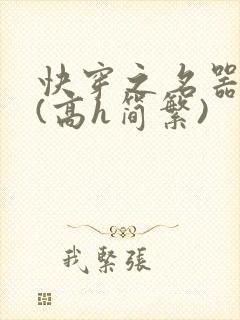 快穿之名器
(高h简繁)
我紧張